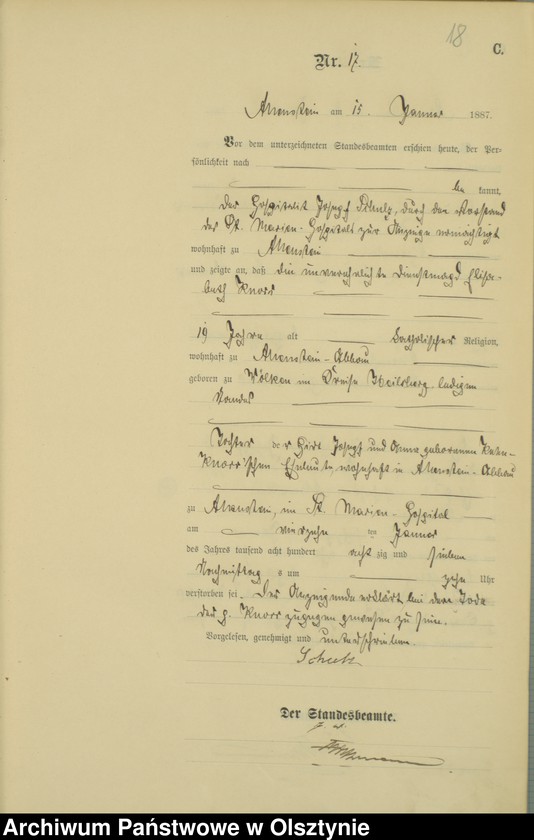 18
C.
Nr. 17.
Allenstein am 15. Januar 1887.
Vor dem unterzeichneten Standesbeamten erschien heute, der Per-
sönlichkeit nach
be kannt,
der Hospitalit Joseph Schulz, durch den Vorstand
des St. Marien-Hospitals zur Anzeige ermächtigt
wohnhaft zu Allenstein
und zeigte an, daß die unverehelichte Dienstmagd Elisa-
beth Knorr
19 Jahre alt katholischer Religion,
wohnhaft zu Allenstein-Abbau
geboren zu Wölken im Kreise Heilsberg, ledigen
Standes
Tochter der Hirt Joseph und Anna geborenen
Knorr'schen Eheleute, wohnhaft in Allenstein-Abbau
zu Allenstein, im St. Marien-Hospital
am vierzehn ten Januar
des Jahres tausend acht hundert acht zig und sieben
Nachmittag s um zehn Uhr
verstorben sei. Der Anzeigende erklärt bei dem Tode
der p. Knorr zugegen gewesen zu sein.
Vorgelesen, genehmigt und unterschrieben.
Schulz
Der Standesbeamte.
Archiwum Państwowe w Olsztynie